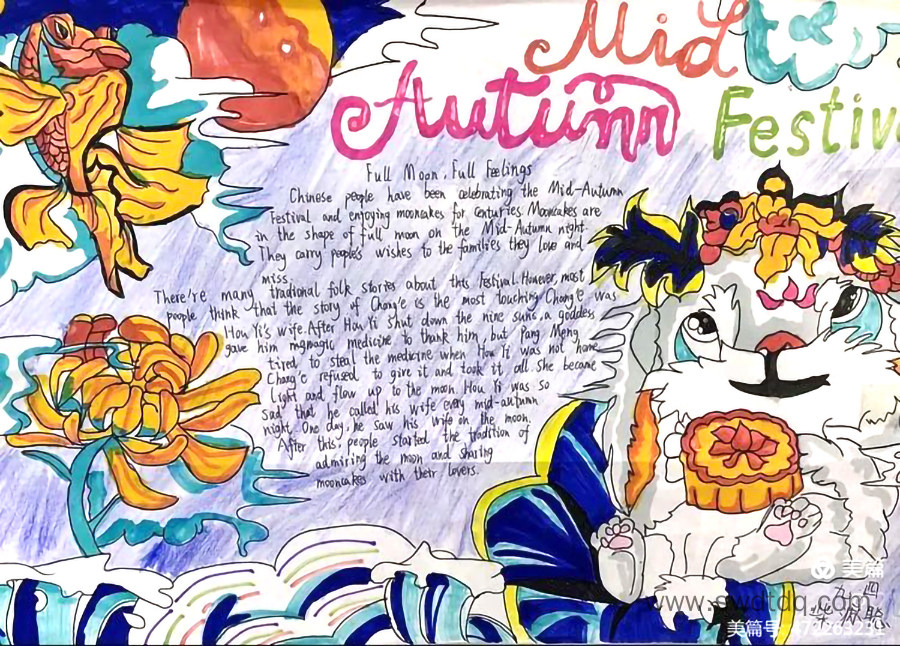 Mid
Autumn Festiv
Full Moon, Full Feelings
Chinese people have been celebrating the Mid-Autumn
Festival and enjoying mooncakes for centuries. Mooncakes are
in the shape of full moon on the Mid-Autumn night.
They carry people's wishes to the families they love and
miss.
There're many traditional folk stories about this festival. However, most
people think that the story of Chang'e is the most touching. Chang'e was
Hou Yi's wife. After Hou Yi shut down the nine suns, a goddess
gave him magic medicine to thank him, but Pang Meng
tired to steal the medicine when Hou Yi was not home
Chang'e refused to give it and took it all. She became
light and flow up to the moon. Hou Yi was so
sad that he called his wife every mid-autumn
night. One day, he saw his wife on the moon.
After this, people started the tradition of
admiring the moon and sharing
mooncakes with their lovers.
美篇
www.cwdtdq.com
美篇号